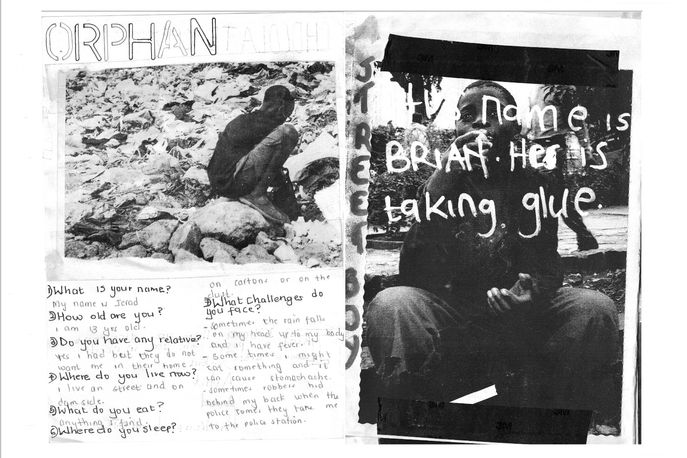 ORPHAN
1) What is your name?
My name is Jerad
2) How old are you?
I am 13 yrs old.
3) Do you have any relative?
Yes I had but they do not
want me in their home.
4) Where do you live now?
I live on street and on
dam side.
5) What do you eat?
anything I find.
6) Where do you sleep?
on cartons or on the
dust.
7) What Challenges do
you face?
- sometimes the rain falls
on my head up to my body
and I have fever.
- Some times I might
eat something and it
can cause stomachache.
- sometimes robbers hid
behind my back when the
police come, they take me
to the police station.
STREET BOY
His name is
BRIAN. He is
taking glue.
3M
3M
3M